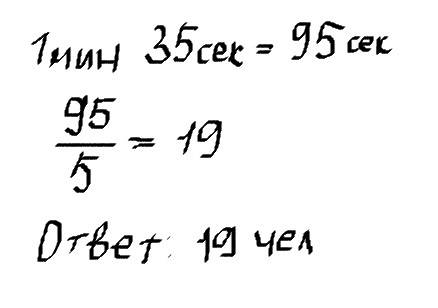 1мин 35сек = 95сек
95/5 = 19
Ответ: 19 чел